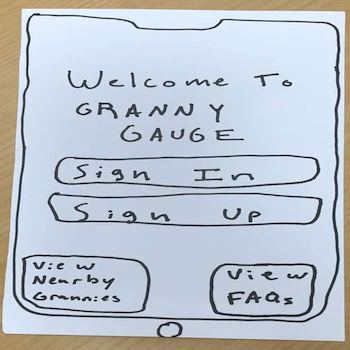 Welcome To
GRANNY
GAUGE
Sign In
Sign Up
View
Nearby
Grannies
View
FAQs